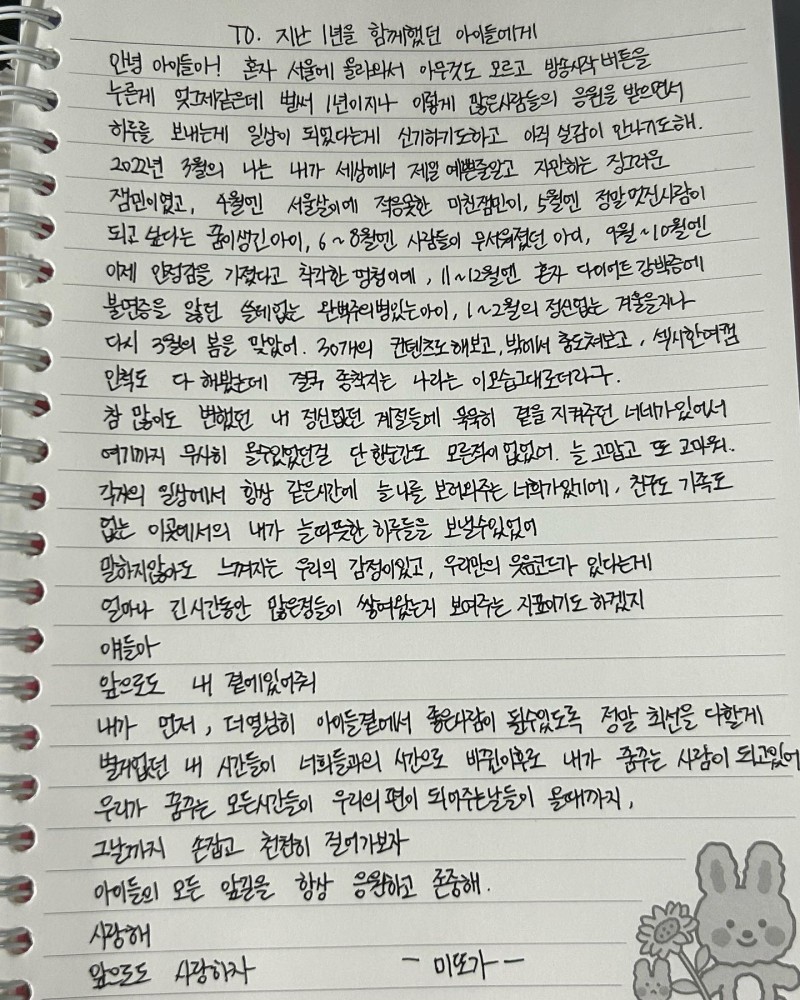 TO. 지난 1년을 함께했던 아이들에게
안녕 아이들아! 혼자 서울에 올라와서 아무것도 모르고 방송시작버튼을
누른게 엊그제같은데 벌써 1년이지나 이렇게 많은사람들의 응원을 받으면서
하루를 보내는게 일상이 되었다는게 신기하기도하고 아직 실감이 안나기도해.
2022년 3월의 나는 내가 세상에서 제일 예쁜줄알고 자만하는 징그러운
잼민이였고, 4월엔 서울살이에 적응못한 미친잼민이, 5월엔 정말멋진사람이
되고 싶다는 꿈이생긴아이, 6~8월엔 사람들이 무서워졌던 아이, 9월~10월엔
이제 안정감을 가졌다고 착각한 멍청이에, 11~12월엔 혼자 다이어트 강박증에
불면증을 앓던 쓸데없는 완벽주의병있는아이, 1~2월의 정신없는 겨울을지나
다시 3월의 봄을 맞았어. 30개의 컨텐츠도해보고, 밖에서 춤도쳐보고, 섹시한여캠
인척도 다 해봤는데 결국 종착지는 나라는 이모습그대로더라구.
참 많이도 변했던 내 정신없던 계절들에 묵묵히 곁을 지켜주던 너네가있어서
여기까지 무사히 올수있었던걸 단 한순간도 모른적이없었어. 늘 고맙고 또 고마워.
각자의 일상에서 항상 같은시간에 늘나를 보러와주는 너희가있기에, 친구도 가족도
없는 이곳에서의 내가 늘따뜻한 하루들을 보낼수있었어
말하지않아도 느껴지는 우리의 감정이있고, 우리만의 웃음코드가 있다는게
얼마나 긴시간동안 많은정들이 쌓여왔는지 보여주는 지표이기도 하겠지
얘들아
앞으로도 내 곁에있어줘
내가 먼저, 더열심히 아이들곁에서 좋은사람이 될수있도록 정말 최선을 다할게
별거없던 내 시간들이 너희들과의 시간으로 바뀐이후로 내가 꿈꾸는 사람이 되고있어
우리가 꿈꾸는 모든시간들이 우리의편이 되어주는날들이 올때까지,
그날까지 손잡고 천천히 걸어가보자
아이들의 모든 앞길을 항상 응원하고 존중해.
사랑해
앞으로도 사랑하자 - 미또가 -